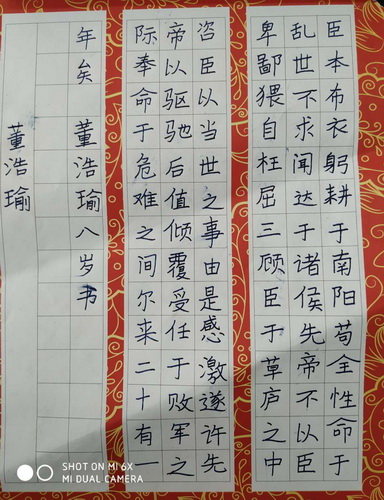 臣本布衣躬耕于南阳苟全性命于
乱世不求闻达于诸侯先帝不以臣
卑鄙猥自枉屈三顾臣于草庐之中
咨臣以当世之事由是感激遂许先
帝以驱驰后值倾覆受任于败军之
际奉命于危难之间尔来二十有一
年矣 董浩瑜八岁书
董浩瑜
SHOT ON MI 6X
MI DUAL CAMERA